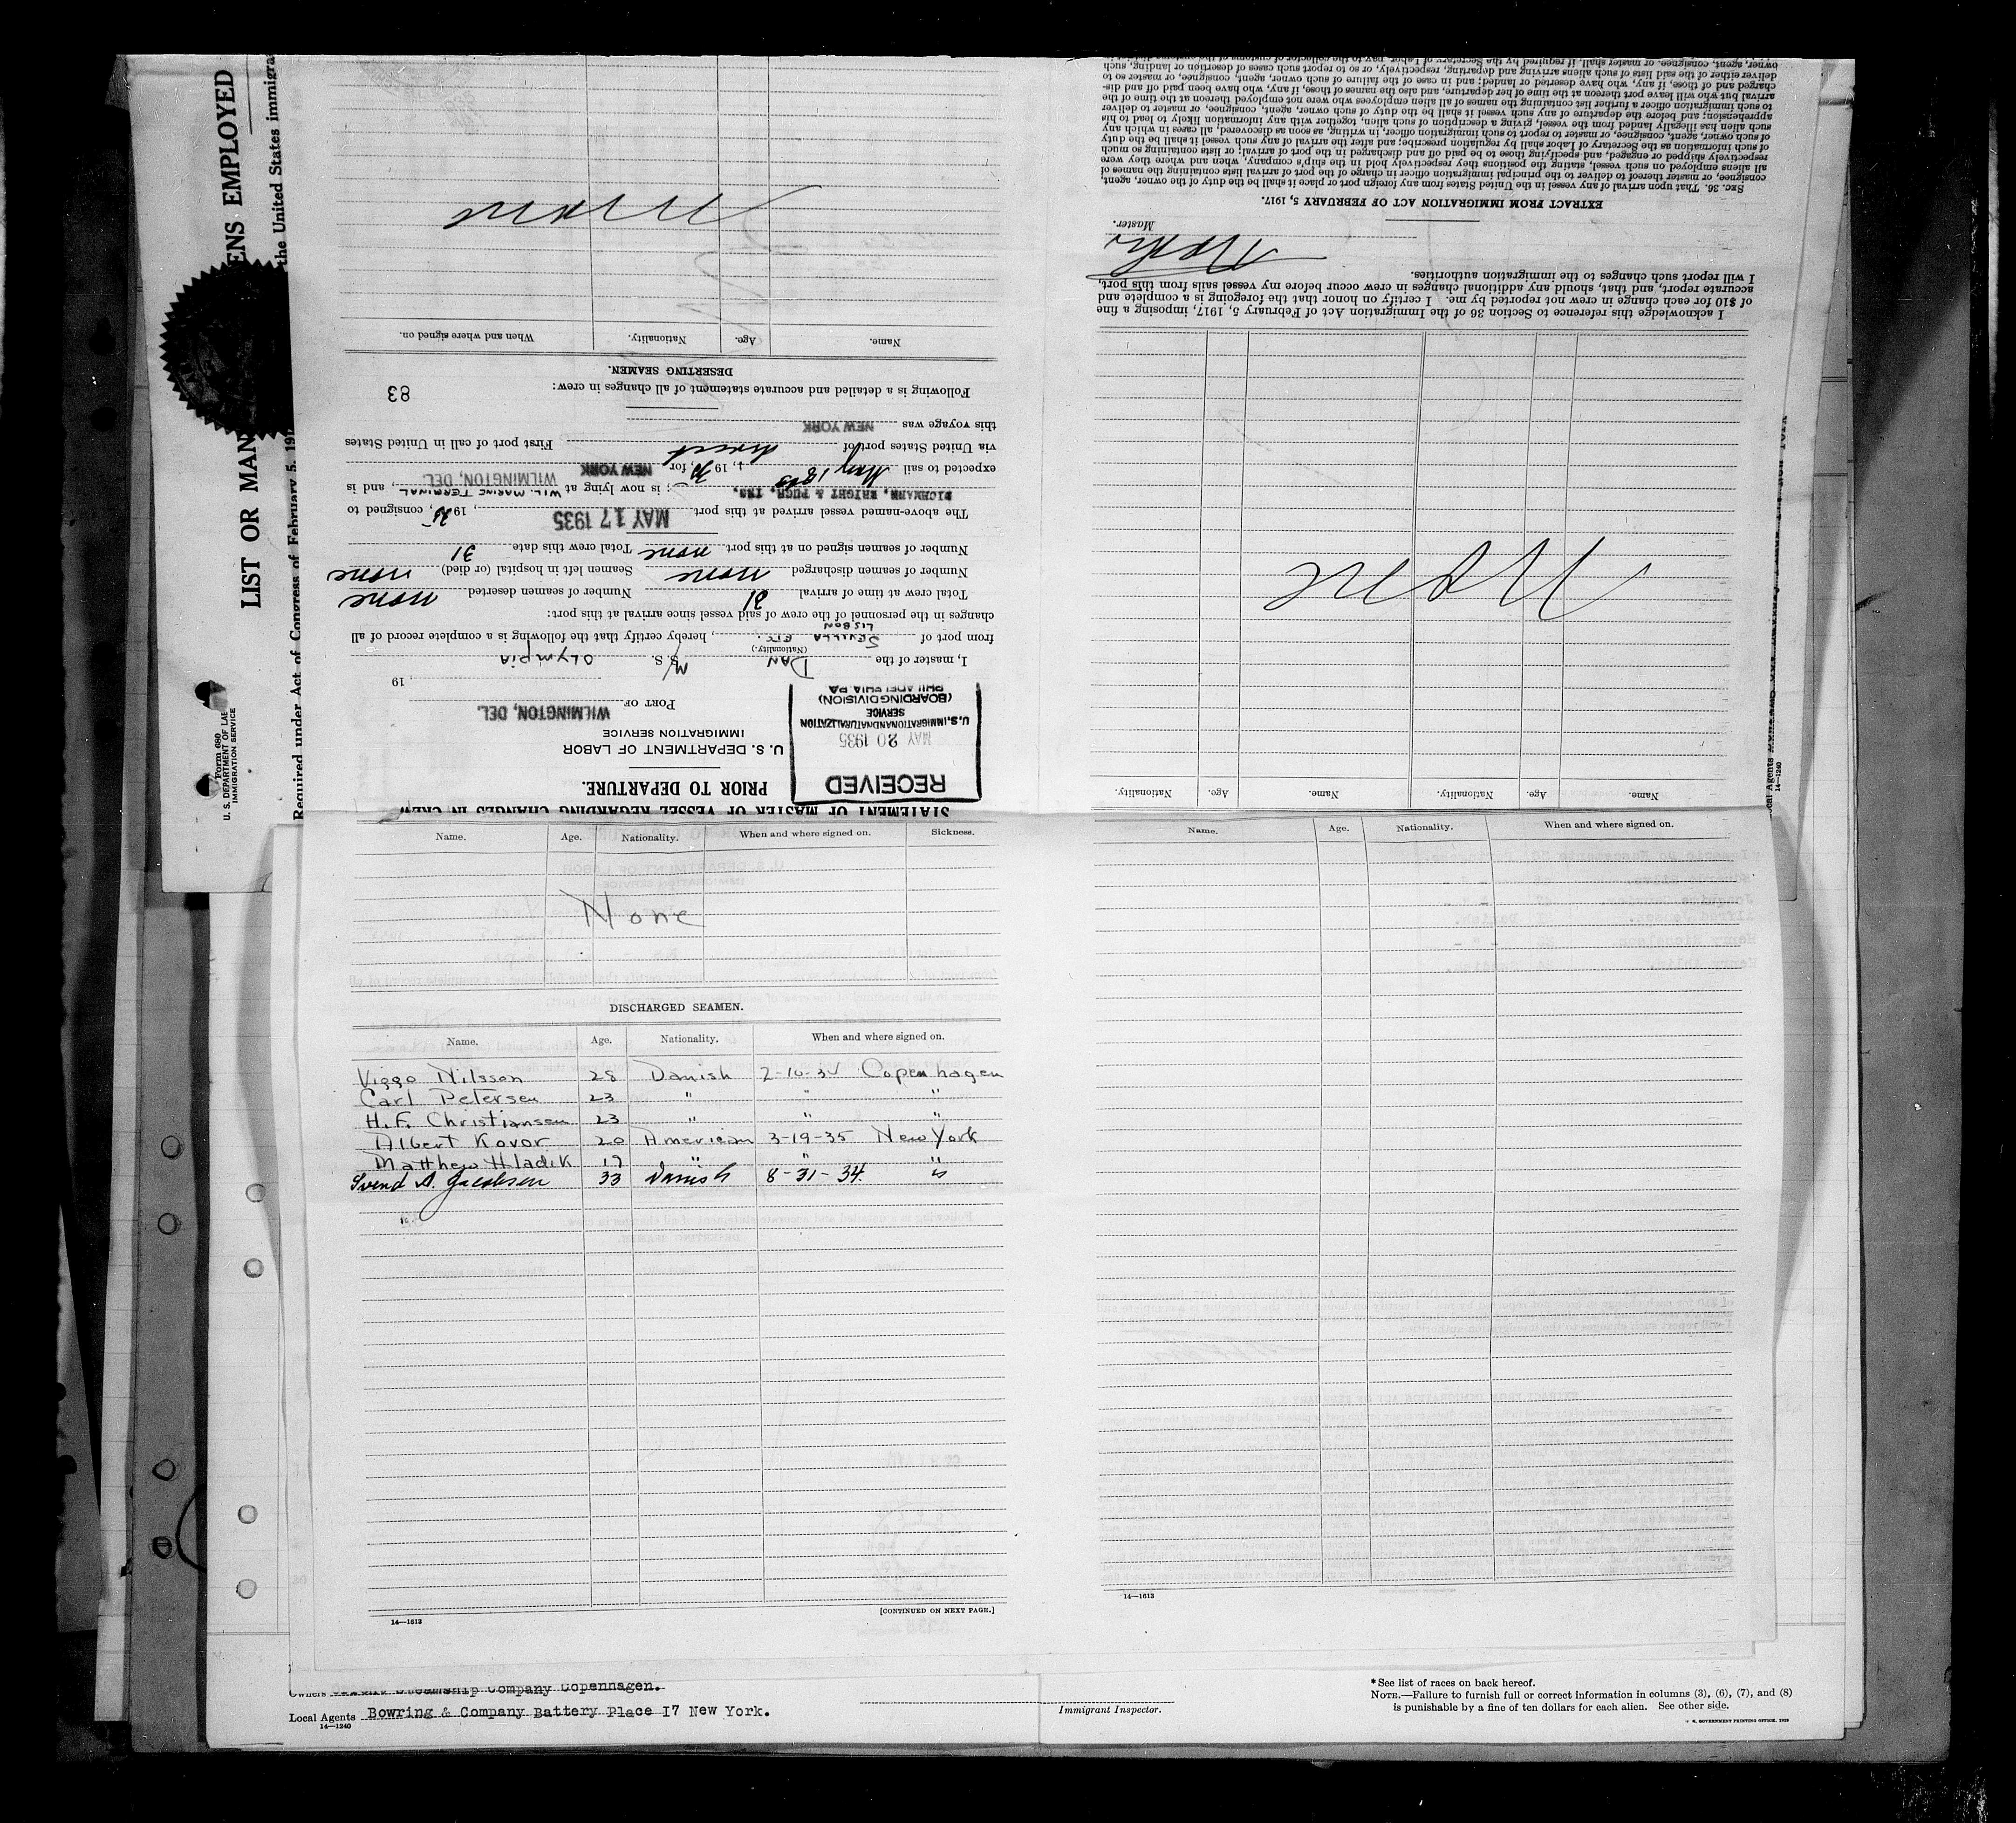 LIST OR MAN
ENS EMPLOYED
Required under Act of Congress of February 5, 191
the United States immigra
Form 680
U. S. DEPARTMENT OF LAB
IMMIGRATION SERVICE
STATEMENT OF MASTER OF VESSEL REGARDING CHANGES IN CREW
PRIOR TO DEPARTURE.
RECEIVED
MAY 20 1935
U.S. IMMIGRATION AND NATURALIZATION
SERVICE
(BOARDING DIVISION)
PHILADELPHIA PA
U. S. DEPARTMENT OF LABOR
IMMIGRATION SERVICE
PORT OF WILMINGTON, DEL.
, 19
I, master of the DAN M/S. S. OLYMPIA
(Nationality.)
from port of SEVILLA ETC. , hereby certify that the following is a complete record of all
LISBON
changes in the personnel of the crew of said vessel since arrival at this port:
Total crew at time of arrival 31 Number of seamen deserted none
Number of seamen discharged none Seamen left in hospital (or died) none
Number of seamen signed on at this port none Total crew this date 31
The above-named vessel arrived at this port MAY 17 1935 , 1935, consigned to
DICHMANN, WRIGHT & PUGH, INC. ; is now lying at WIL. MARINE TERMINAL WILMINGTON, DEL. , and is
expected to sail May 18 , 1935, for NEW YORK
via United States port of direct First port of call in United States
this voyage was NEW YORK
Following is a detailed and accurate statement of all changes in crew: 83
DESERTING SEAMEN.
Name. Age. Nationality. When and where signed on.
None
Name. Age. Nationality. Name. Age. Nationality.
None
I acknowledge this reference to Section 36 of the Immigration Act of February 5, 1917, imposing a fine
of $10 for each change in crew not reported by me. I certify on honor that the foregoing is a complete and
accurate report, and that, should any additional changes in crew occur before my vessel sails from this port,
I will report such changes to the immigration authorities.
Master.
EXTRACT FROM IMMIGRATION ACT OF FEBRUARY 5, 1917.
SEC. 36. That upon arrival of any vessel in the United States from any foreign port or place it shall be the duty of the owner, agent,
consignee, or master thereof to deliver to the principal immigration officer in charge of the port of arrival lists containing the names of
all aliens employed on such vessel, stating the positions they respectively hold in the ship's company, when and where they were
respectively shipped or engaged, and specifying those to be paid off and discharged in the port of arrival; or lists containing so much
of such information as the Secretary of Labor shall by regulation prescribe; and after the arrival of any such vessel it shall be the duty
of such owner, agent, consignee, or master to report to such immigration officer, in writing, as soon as discovered, all cases in which any
such alien has illegally landed from the vessel, giving a description of such alien, together with any information likely to lead to his
apprehension; and before the departure of any such vessel it shall be the duty of such owner, agent, consignee, or master to deliver
to such immigration officer a further list containing the names of all alien employees who were not employed thereon at the time of the
arrival but who will leave port thereon at the time of her departure, and also the names of those, if any, who have been paid off and dis-
charged and of those, if any, who have deserted or landed; and in case of the failure of such owner, agent, consignee, or master so to
deliver either of the said lists of such aliens arriving and departing, respectively, or so to report such cases of desertion or landing, such
owner, agent, consignee, or master shall, if required by the Secretary of Labor, pay to the collector of customs of the customs district in
14—1240
Name. Age. Nationality. When and where signed on. Sickness.
None
DISCHARGED SEAMEN.
Name. Age. Nationality. When and where signed on.
Viggo Nilsson 28 Danish 2-10-34 Copenhagen
Carl Petersen 23 " " "
H.F. Christiansen 23 " " "
Albert Kovor 20 American 3-19-35 New York
Matthew Hladik 19 " " "
Svend A. Jacobsen 33 Danish 8-31-34 "
14—1613
[CONTINUED ON NEXT PAGE.]
Name. Age. Nationality. When and where signed on.
14—1613
Owners Steamship Company Copenhagen.
Local Agents Bowring & Company Battery Place 17 New York.
14—1240
Immigrant Inspector.
* See list of races on back hereof.
NOTE.—Failure to furnish full or correct information in columns (3), (6), (7), and (8)
is punishable by a fine of ten dollars for each alien. See other side.
U. S. GOVERNMENT PRINTING OFFICE. 1929